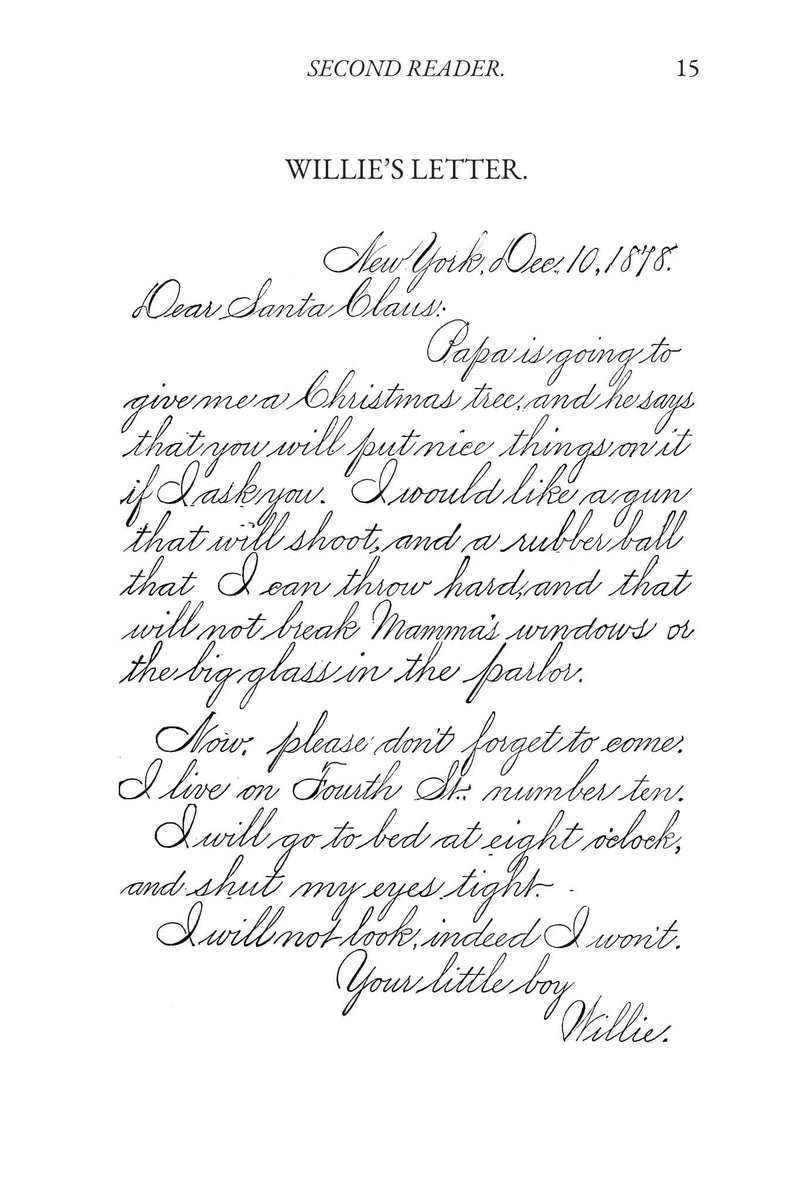 SECOND READER. 15
WILLIE'S LETTER.
New York, Dec. 10, 1878.
Dear Santa Claus:
Papa is going to
give me a Christmas tree, and he says
that you will put nice things on it
if I ask you. I would like a gun
that will shoot, and a rubber ball
that I can throw hard, and that
will not break Mamma's windows or
the big glass in the parlor.
Now, please don't forget to come.
I live on Fourth St., number ten.
I will go to bed at eight o'clock,
and shut my eyes tight.
I will not look, indeed I won't.
Your little boy
Willie.